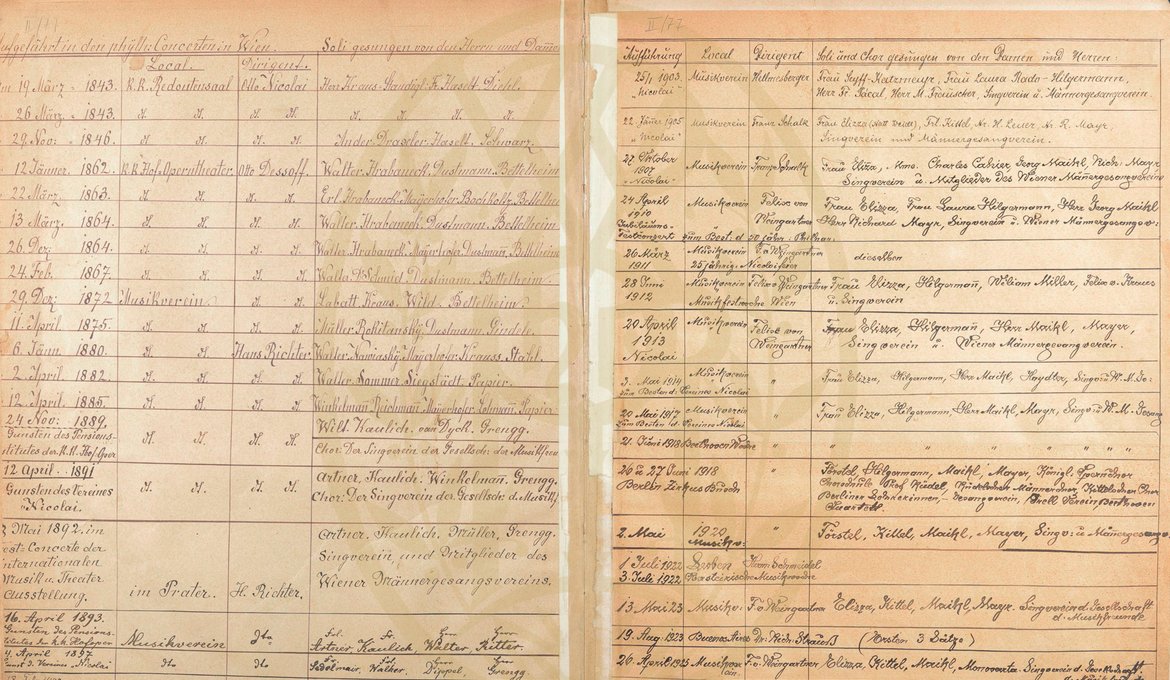 Aufgeführt in den phylh: Concerten in Wien. Soli gesungen von den Herrn und Damen
Local. Dirigent.
19 März 1843. K.K. Redoutensaal Otto Nicolai Herr Kraus, Staudigl, Fr. Hasselt. Diehl.
26 März 1843. H. H. H. H. H. H. H. H.
29. Nov: 1846. H. H. H. H. Ander Draxler Haselt. Schwarz.
12 Jänner. 1862. K.K. Hof. Operntheater. Otto Dessoff. Walter. Hrabaneck. Dustmann. Bettelheim
22. März 1863. H. H. H. H. Erl. Hrabaneck. Mayerhofer. Bochholtz. Bettelheim
13 März 1864. H. H. H. H. Walter. Hrabaneck. Dustmann. Bettelheim.
26. Dez 1864. H. H. H. H. Walter. Hrabaneck. Mayerhofer. Dustman. Bettelheim
24. Feb. 1867. H. H. H. H. Walter Dr Schmid Dustmann. Bettelheim.
29. Dez: 1872 Musikverein. H. H. Labatt. Kraus. Wild. Bettelheim.
11. April. 1875. H. H. H. H. Müller. Rokitansky. Dustmann. Gindele.
6. Jänn. 1880. H. H. Hans Richter Walter. Mayerhofer. Krauss. Stahl.
2. April. 1882. H. H. H. H. Walter. Sommer. Siegstädt. Papier.
12. April. 1885. H. H. H. H. Winkelman. Reichman. Mayerhofer. Lehmann. Papier
24. Nov: 1889. Wilt. Kaulich. van Dyck. Grengg.
Gunsten des Pensions- H. H. H. H. Chor: Der Singverein der Gesellsch: der Musikfreu
institutes der K.K. Hof. Oper
12 April. 1891 Artner. Kaulich. Winkelmañ. Grengg.
Gunsten des Vereines H. H. H. H. Chor: Der Singverein des Gesellsch: d. Musikf
"Nicolai.
Mai 1892. im Artner. Kaulich. Müller. Grengg.
Fest-Concerte der Singverein, und Mitglieder des
Internationalen Wiener Männergesangsvereins.
Musik u. Theater
Ausstellung. im Prater. H. Richter.
16. April 1893. Frl. Fr. Herr Herr
Gunsten des Pensions- Musikverein dto Artner Kaulich Walter. Ritter.
Institutes der k.k. Hofoper
4. April 1897. dto dto Sedlmair. Walter. Dippel. Grengg.
Gunst. d. Vereins Nicolai
II/77
Aufführung Local Dirigent Soli und Chor gesungen von den Damen und Herren:
25/1 1903. Musikverein Hellmesberger Frau Seyff-Katzmayr, Frau Laura Rado-Hilgermann,
"Nicolai" Herr Fr. Pacal, Herr M. Frauscher, Singverein u. Männergesangverein.
22. Jänner 1905 Musikverein Franz Schalk Frau Elizza, Frl. Kittel, Hr. H. Leuer, Hr. R. Mayr,
"Nicolai" Singverein u. Männergesangverein.
27. Oktober Musikverein Franz Schalk Frau Elizza, Mme. Charles Cahier, Georg Maikl, Rich. Mayr
1907 Singverein u. Mitglieder des Wiener Männergesangverein
"Nicolai"
24 April Musikverein Felix von Frau Elizza, Frau Laura Hilgermann, Herr Georg Maikl
1910 Weingartner Herr Richard Mayr, Singverein u. Wiener Männergesangv:
Jubiläums-
Festconzert zum Best. d. 50 jähr. Philhar.
26 März Musikverein F. v. Weingartner dieselben
1911 25jährig. Nicolaifeier
28 Juni Musikverein Felix v. Weingartner Frau Elizza, Hilgermañ, William Miller, Felix v. Kraus
1912 Musikfestwoche Wien u. Singverein
20 April Musikverein Felix von Frau Elizza, Hilgermañ, Herr Maikl, Mayer,
1913 Weingartner Singverein u. Wiener Männergesangverein.
Nicolai
3. Mai 1914 Musikverein " Frau Elizza, Hilgermann, Herr Maikl, Haydter, Singv. u. W. M. Ge.
zum Bestend. Vereins Nicolai
20 Mai 1917 Musikverein " Frau Elizza, Hilgermañ, Herr Maikl, Mayr, Singv. u. W. M. Gesang
Zum Besten d. Vereins Nicolai
21. Juni 1918 Beethoven Woche " " " " " " " "
26 u 27 Juni 1918 " Förstel, Hilgermann, Maikl, Mayer, Königl. Opern
Berlin Zirkus Busch Prof. Rüdel,
Berliner Lehrerinnen-Gesangverein,
2. Mai 1920 " Förstel, Kittel, Maikl, Mayer, Singv. u Männergesangv
Musikv:
1 Juli 1922
3. Juli 1922
13. Mai 23 Musikv. F. v Weingartner Elizza, Kittel, Maikl, Mayr. Singverein d. Gesellschaft
d. Musikfreunde
19. Aug. 1923 Buenos Aires Dr. Rich. Strauß (Ersten 3 Sätze)
26. April 1925 Musikver F. v. Weingartner Elizza, Kittel, Maikl, Manowarda. Singverein d. Gesellschaft
d. Musikfreunde